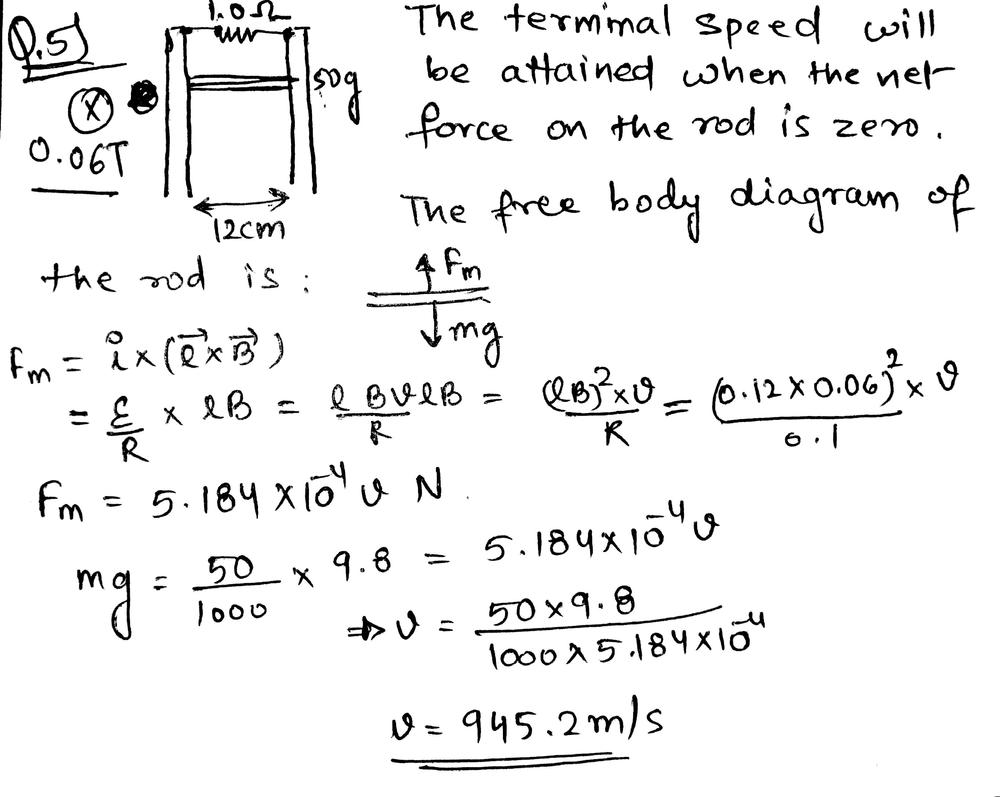 Q.5)
1.0Ω
50g
(X)
0.06T
12cm
The terminal speed will
be attained when the net
force on the rod is zero.
The free body diagram of
the rod is :
Fm
mg
Fm = i×(l⃗×B⃗)
= ε/R × lB = l B v l B / R = (lB)²×v / R = (0.12×0.06)²×v / 0.1
Fm = 5.184×10⁻⁴ v N.
mg = 50/1000 × 9.8 = 5.184×10⁻⁴ v
⇒ v = 50×9.8 / 1000×5.184×10⁻⁴
v = 945.2m/s